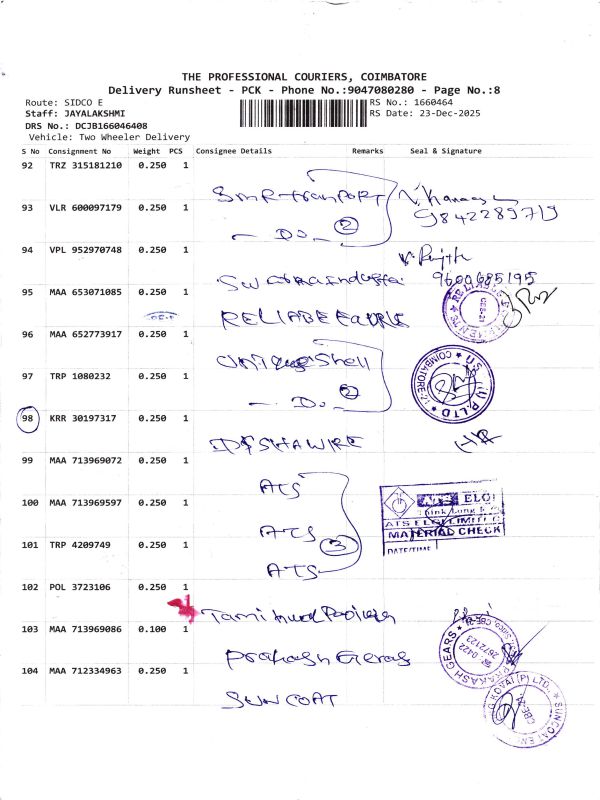 THE PROFESSIONAL COURIERS, COIMBATORE
Delivery Runsheet - PCK - Phone No.:9047080280 - Page No.:8
Route: SIDCO E
RS No.: 1660464
Staff: JAYALAKSHMI
RS Date: 23-Dec-2025
DRS No.: DCJB166046408
Vehicle: Two Wheeler Delivery
S No Consignment No Weight PCS Consignee Details Remarks Seal & Signature
92 TRZ 315181210 0.250 1
SMR
9842289719
93 VLR 600097179 0.250 1
- Do - 2
94 VPL 952970748 0.250 1
9600685195
95 MAA 653071085 0.250 1
96 MAA 652773917 0.250 1
Shell
97 TRP 1080232 0.250 1
- Do - 2
COIMBATORE
(I) P.LTD
98 KRR 30197317 0.250 1
99 MAA 713969072 0.250 1
ATS
100 MAA 713969597 0.250 1
ATS 3
ELGI
ATS ELGI LIMITED
MATERIAL CHECK
DATE/TIME
101 TRP 4209749 0.250 1
ATS
102 POL 3723106 0.250 1
Tamilnadu
103 MAA 713969086 0.100 1
Prakash Gears
PRAKASH GEARS
0422
2672123
104 MAA 712334963 0.250 1
SUNCOAT
KOVAI (P) LTD.
SUNCOAT